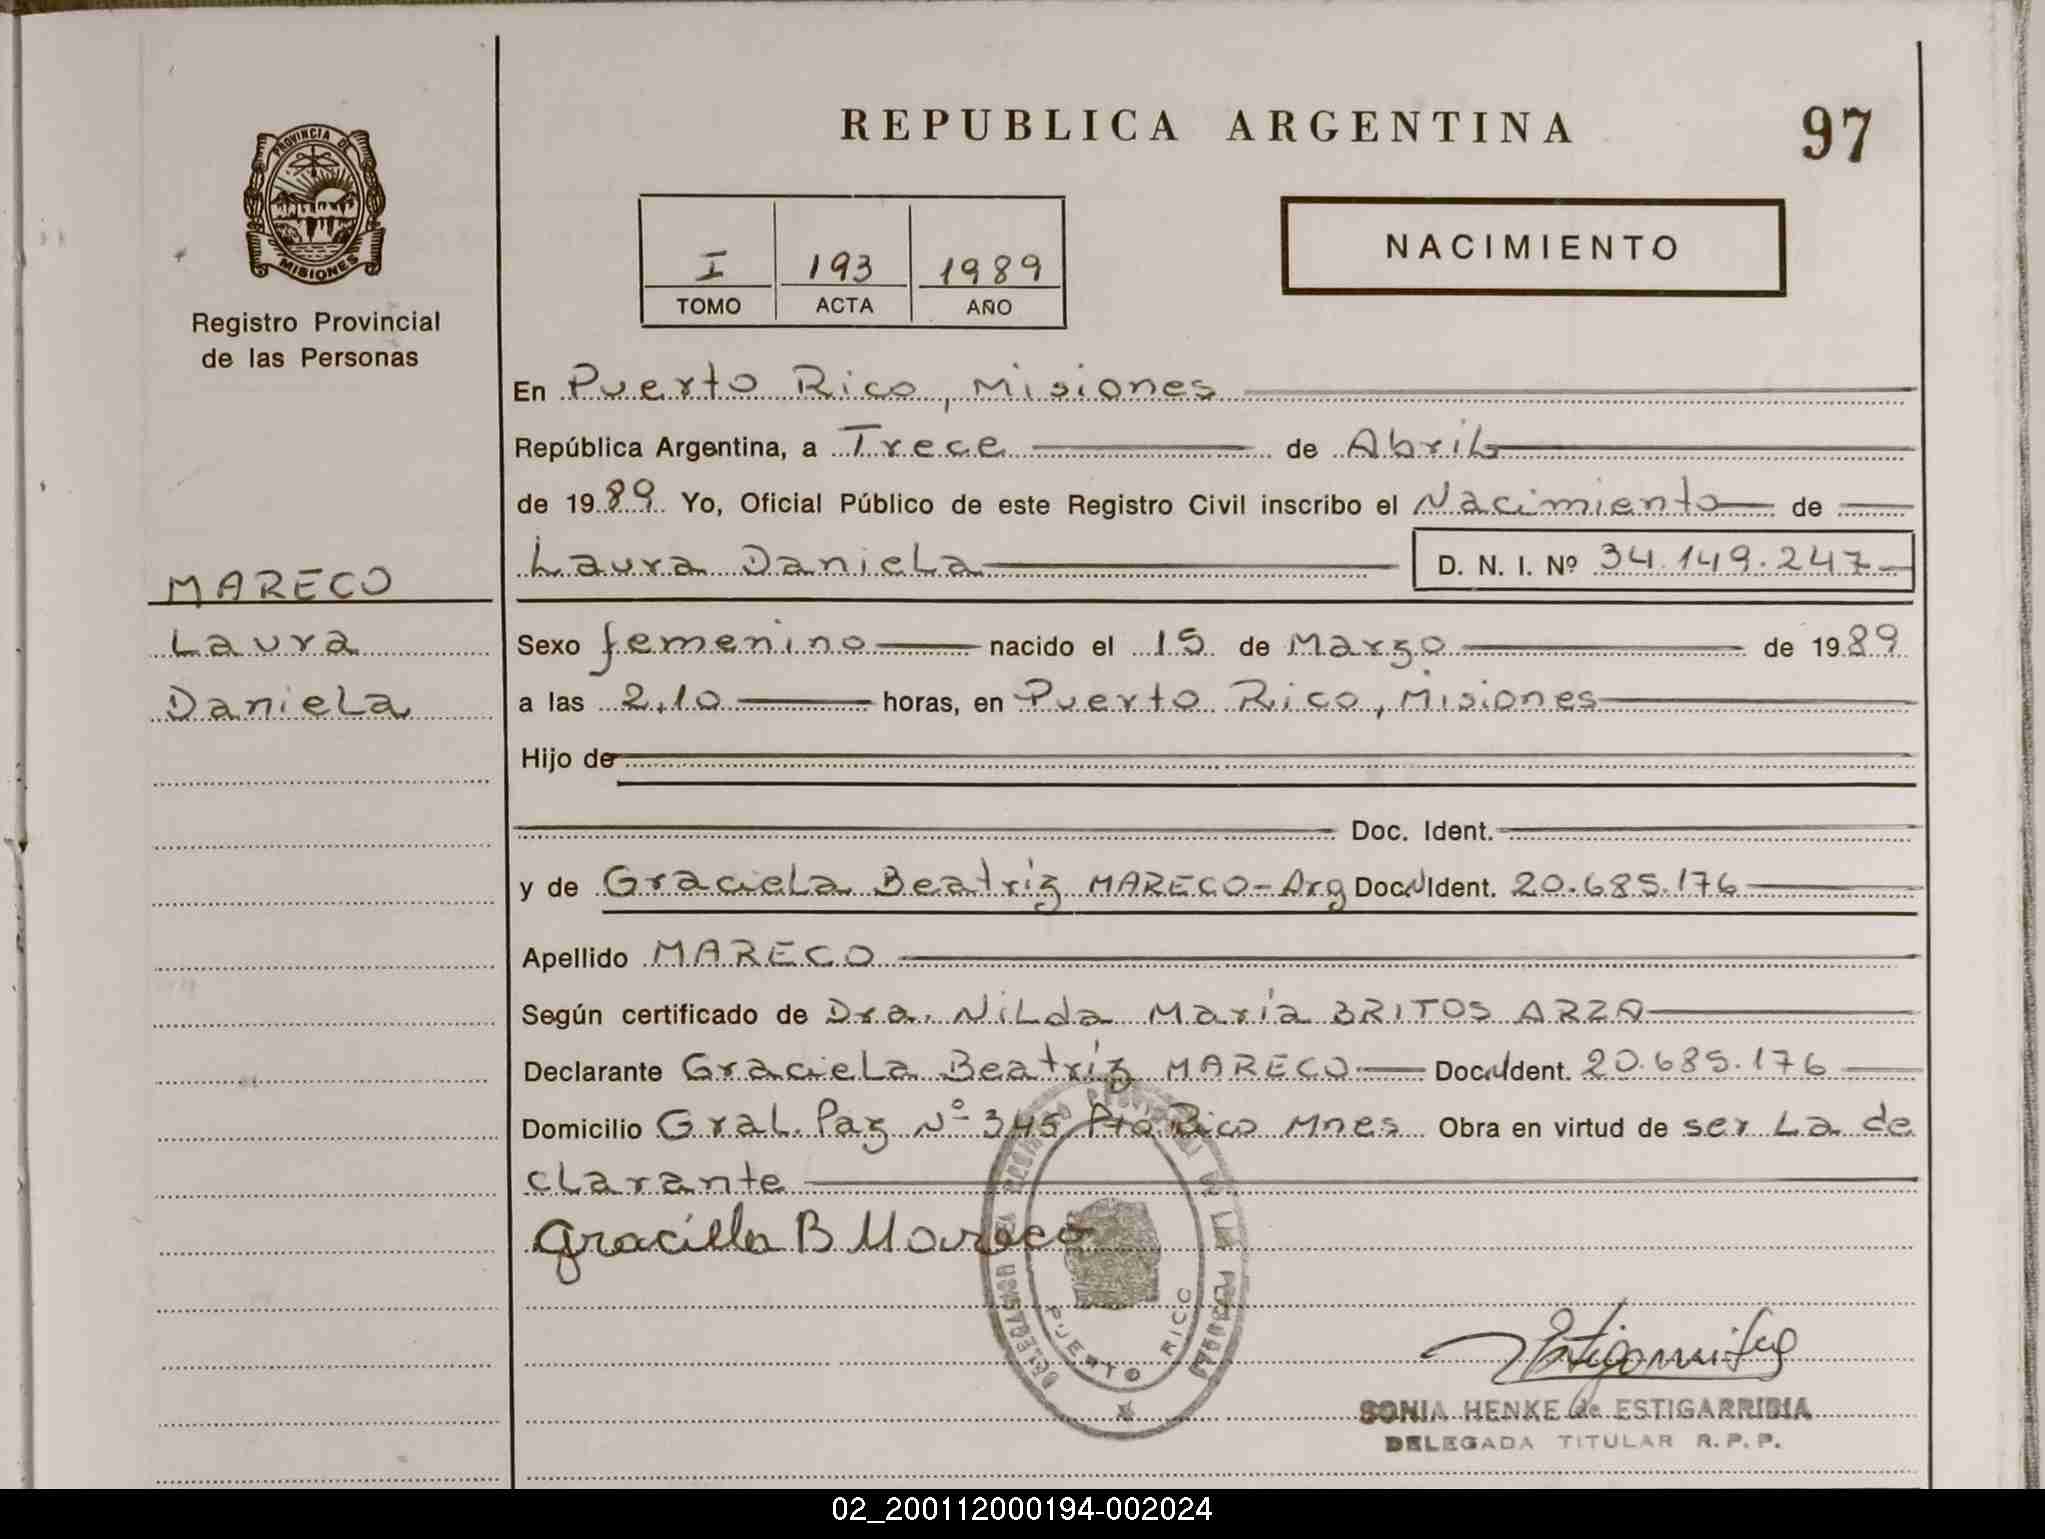 REPUBLICA ARGENTINA
97
PROVINCIA DE
MISIONES
Registro Provincial
de las Personas
I 193 1989
TOMO ACTA AÑO
NACIMIENTO
En Puerto Rico, Misiones
República Argentina, a Trece de Abril
de 1989 Yo, Oficial Público de este Registro Civil inscribo el Nacimiento de
Laura Daniela D. N. I. Nº 34.149.247
MARECO
Laura
Daniela
Sexo femenino nacido el 15 de Marzo de 1989
a las 2,10 horas, en Puerto Rico, Misiones
Hijo de
Doc. Ident.
y de Graciela Beatríz MARECO-Arg Doc. Ident. 20.685.176
Apellido MARECO
Según certificado de Dra. Nilda María BRITOS ARZA
Declarante Graciela Beatríz MARECO Doc. Ident. 20.685.176
Domicilio Gral. Paz Nº 345 Pto Rico Mnes Obra en virtud de ser la de
clarante
Graciela B Mareco
PUERTO RICO
SONIA HENKE de ESTIGARRIBIA
DELEGADA TITULAR R.P.P.
02_200112000194-002024